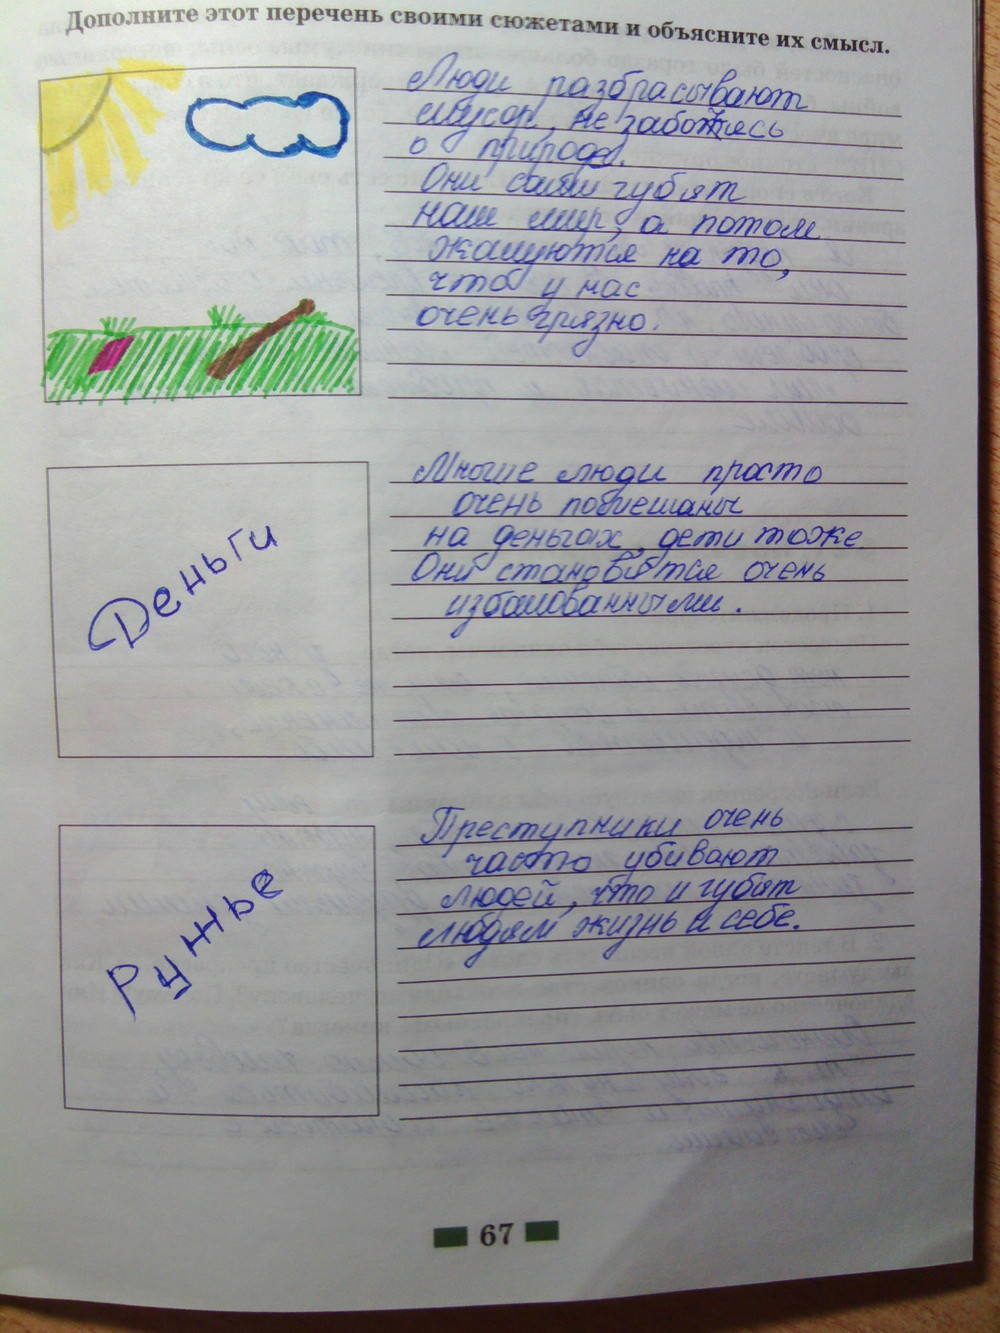 Дополните этот перечень своими сюжетами и объясните их смысл.
Люди разбрасывают
мусор, не заботясь
о природе.
Они сами губят
наш мир, а потом
жалуются на то,
что у нас
очень грязно.
Деньги
Многие люди просто
очень помешаны
на деньгах, дети тоже.
Они становятся очень
избалованными.
Ружье
Преступники очень
часто убивают
людей, что и губят
людям жизнь и себе.
67